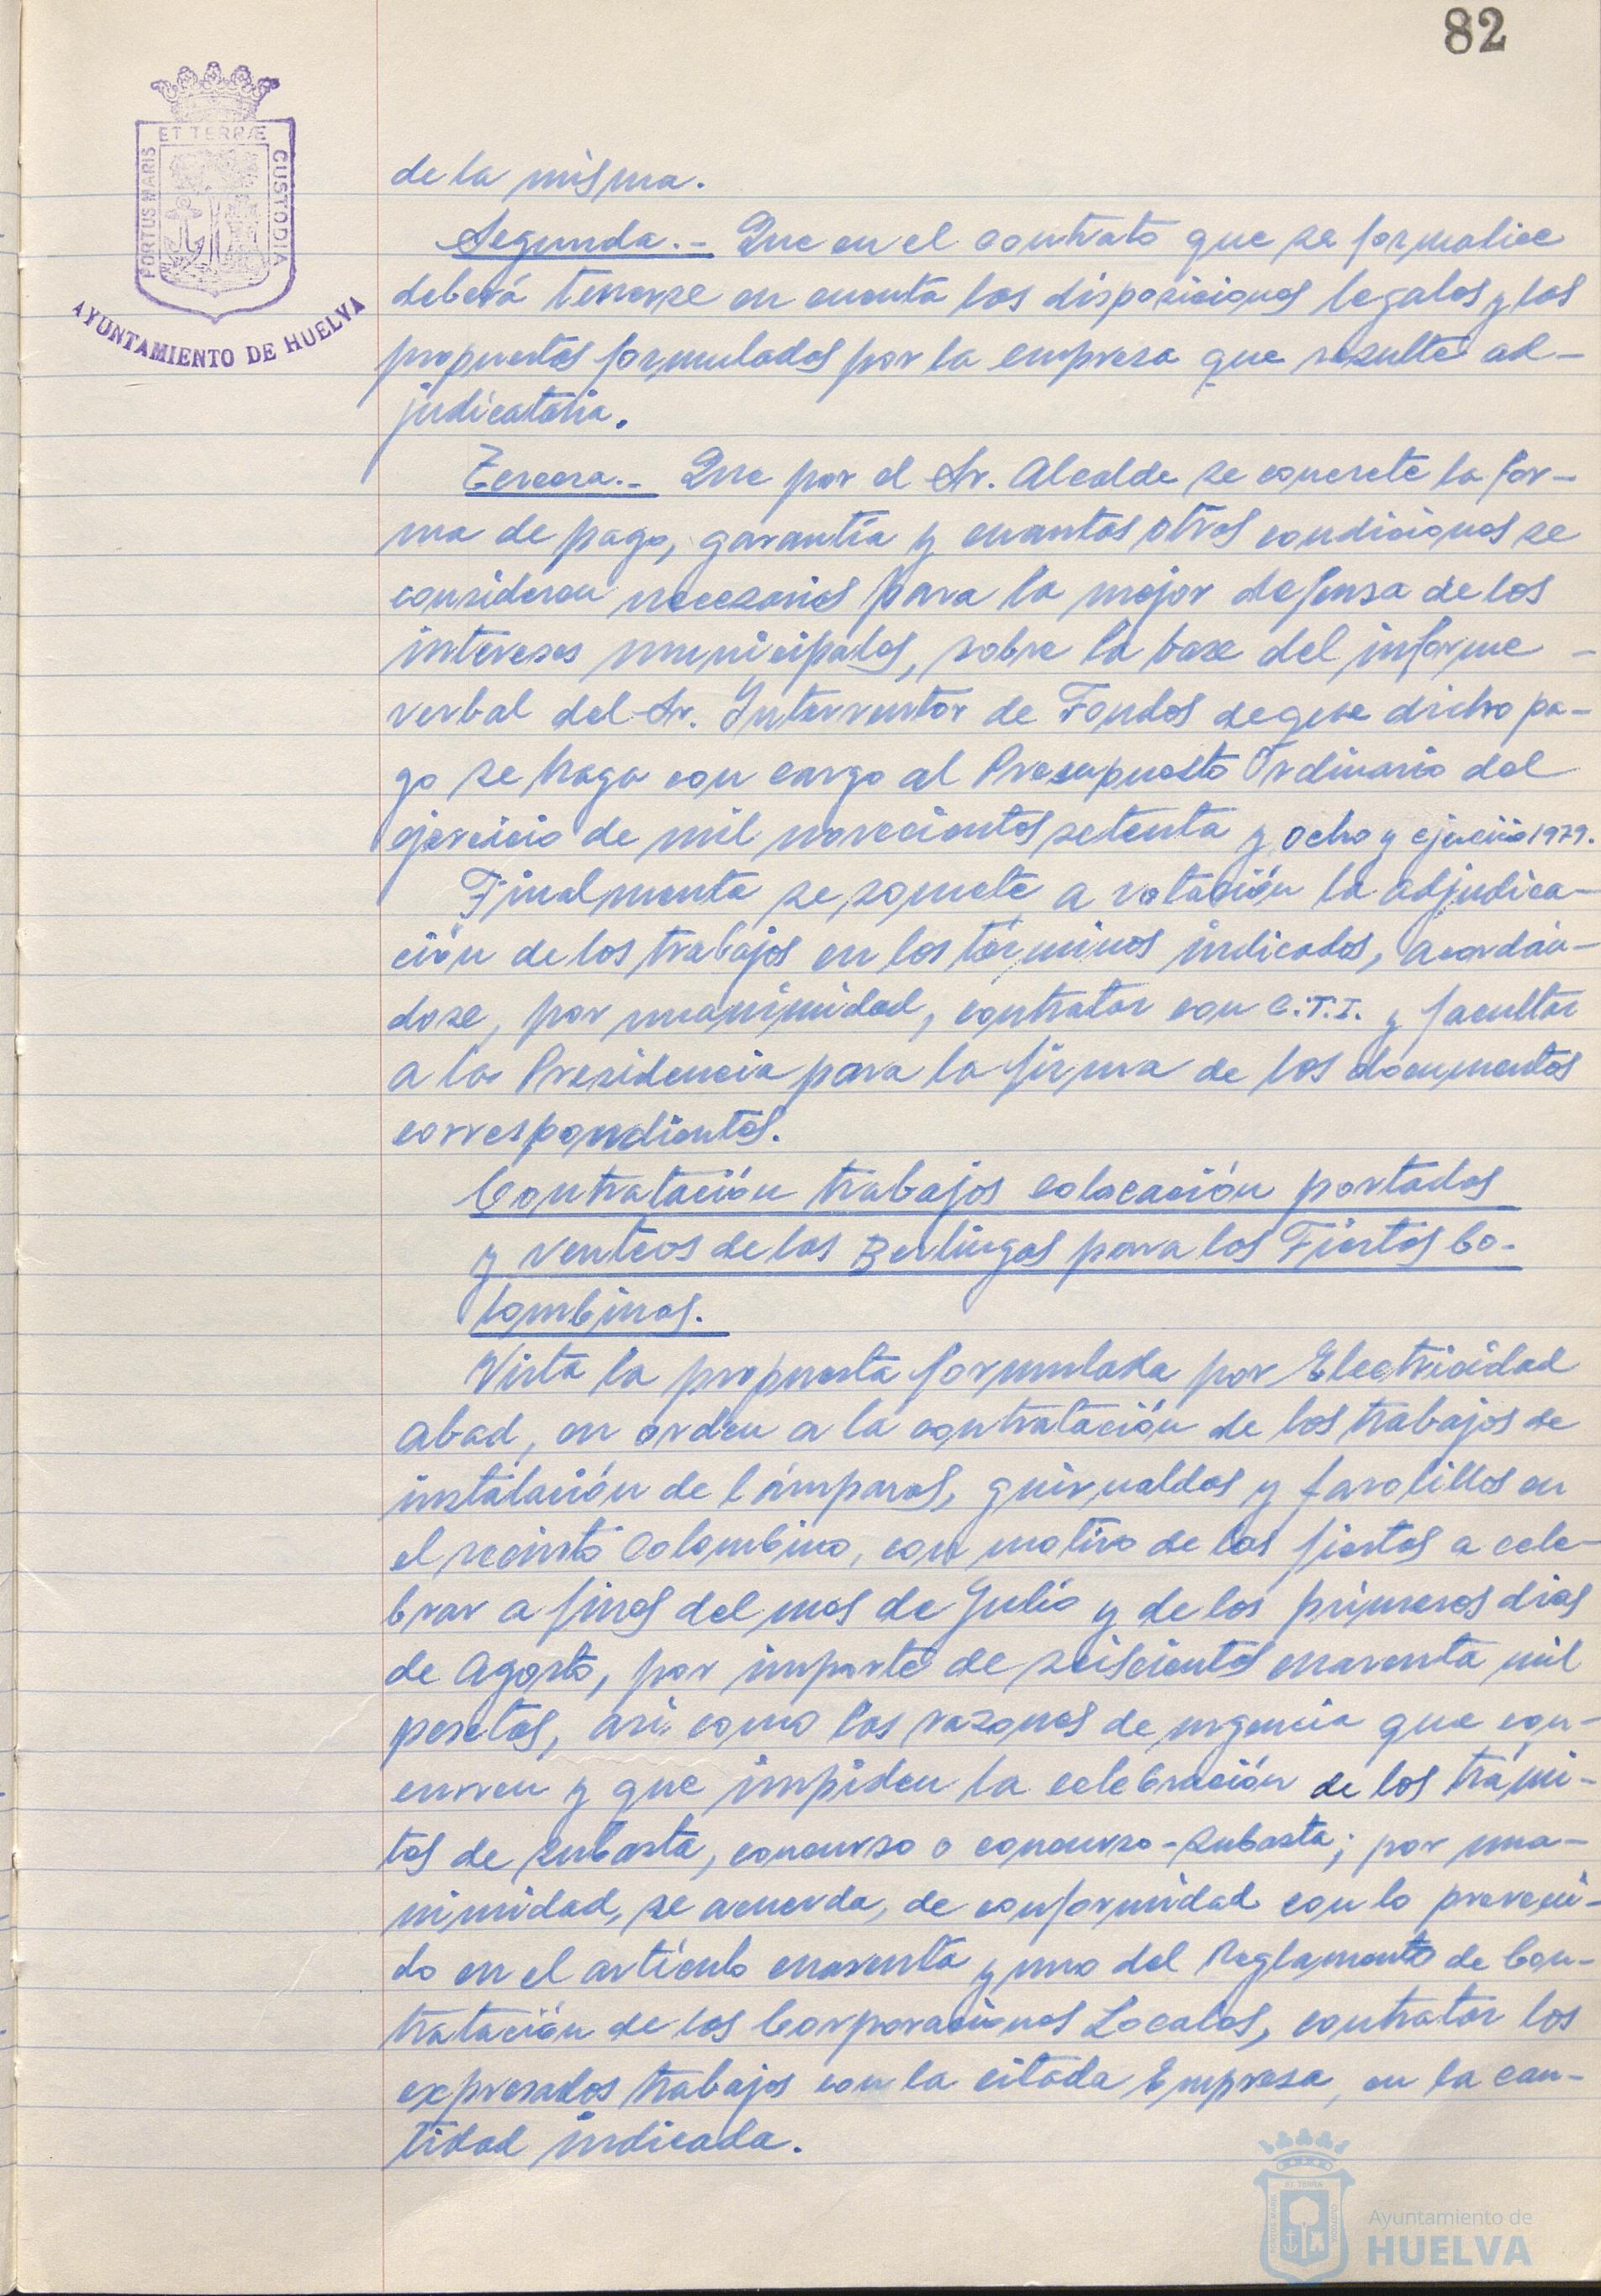 82
ET TERRÆ
PORTUS MARIS
CUSTODIA
AYUNTAMIENTO DE HUELVA
de la misma.
Segunda.- Que en el contrato que se formalice
deberá tenerse en cuenta las disposiciones legales y las
propuestas formuladas por la empresa que resulte ad-
judicataria.
Tercera.- Que por el Sr. Alcalde se concrete la for-
ma de pago, garantía y cuantas otras condiciones se
consideren necesarias para la mejor defensa de los
intereses municipales, sobre la base del informe -
verbal del Sr. Interventor de Fondos de que dicho pa-
go se haga con cargo al Presupuesto Ordinario del
ejercicio de mil novecientos setenta y ocho y ejercicio 1979.
Finalmente se somete a votación la adjudica-
ción de los trabajos en los términos indicados, acordán-
dose, por unanimidad, contratar con C.T.I. y facultar
a la Presidencia para la firma de los documentos
correspondientes.
Contratación trabajos colocación portadas
y venteos de las Berlingas para las Fiestas Co-
lombinas.
Vista la propuesta formulada por Electricidad
Abad, en orden a la contratación de los trabajos de
instalación de lámparas, guirnaldas y farolillos en
el recinto Colombino, con motivo de las fiestas a cele-
brar a fines del mes de Julio y de los primeros dias
de Agosto, por importe de seiscientas cuarenta mil
pesetas, asi como las razones de urgencia que con-
curren y que impiden la celebración de los trámi-
tes de subasta, concurso o concurso-subasta; por una-
nimidad, se acuerda, de conformidad con lo preveni-
do en el artículo cuarenta y uno del Reglamento de Con-
tratación de las Corporaciones Locales, contratar los
expresados trabajos con la citada Empresa, en la can-
tidad indicada.
Ayuntamiento de
HUELVA